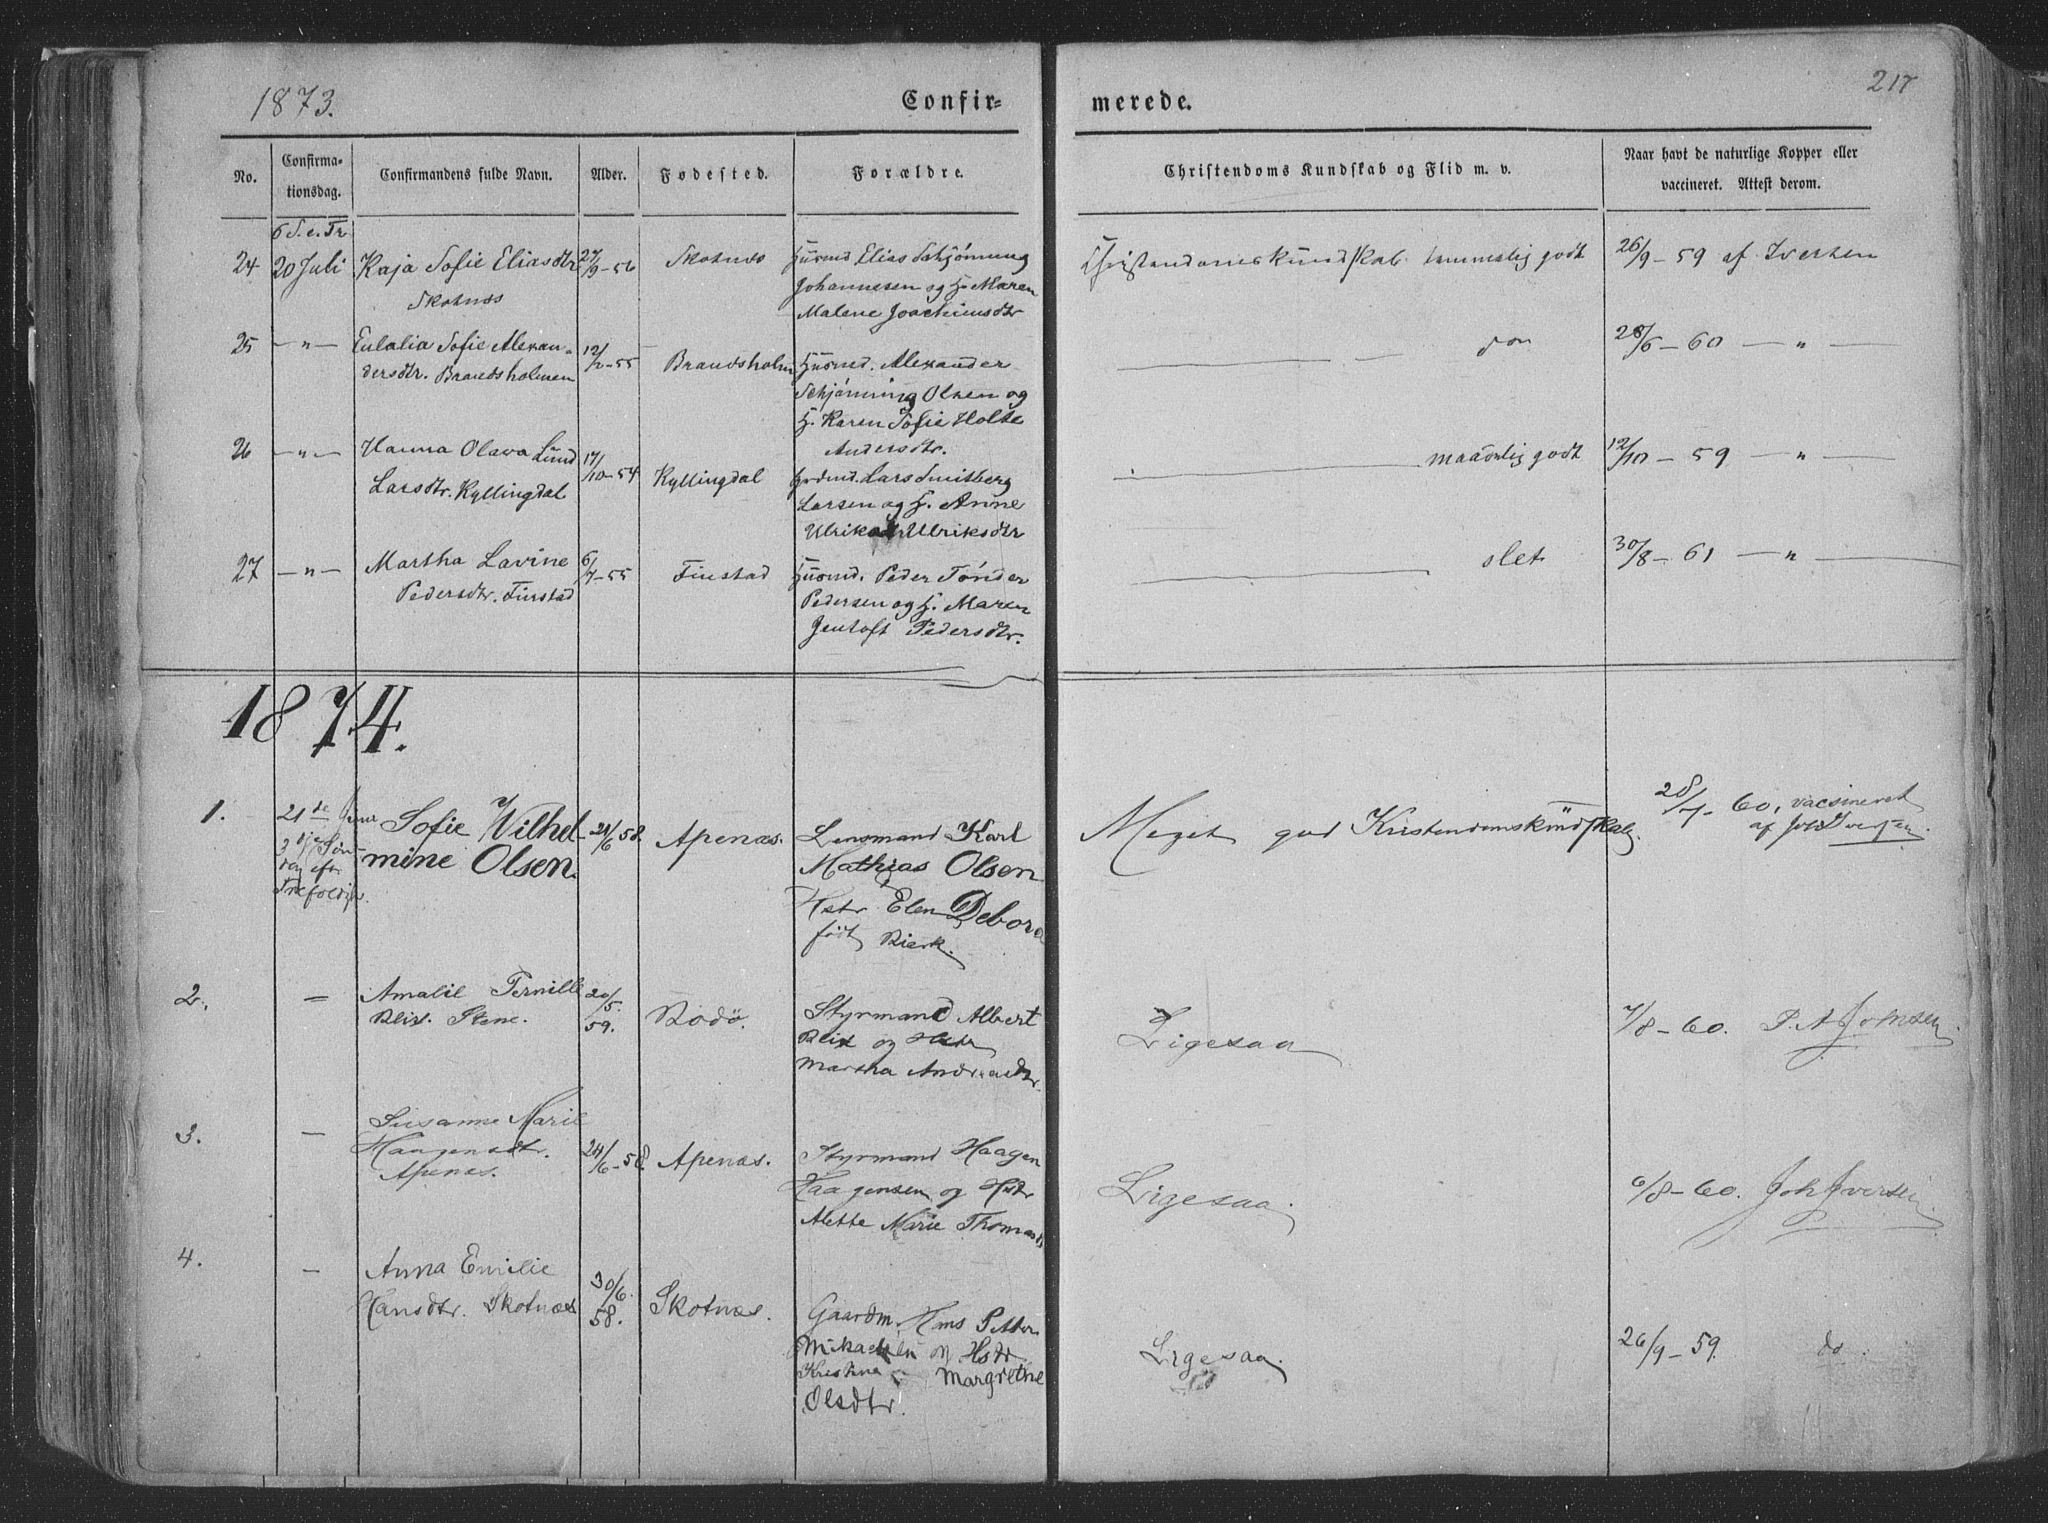 1873.
Confir-
merede.
217
No.
Confirma-
tionsdag.
Confirmandens fulde Navn.
Alder.
Fødested.
Forældre.
Christendoms Kundskab og Flid m. v.
Naar havt de naturlige Kopper eller
vaccineret. Attest derom.
6 S. e. Tr.
24 20 Juli Kaja Sofie Eliasdtr 27/9-56 Skotnæs Huusmd Elias Schjønning Christendomskundskab temmelig godt 26/9-59 af Iversen
Skotnæs Johannesen og H. Maren
Malene Joachimsdtr
25 -"- Eulalia Sofie Alexan- 12/2-55 Brandsholm Huusmd. Alexander don 28/6-60 -"-
dersdtr. Brandsholmen Schjønning Olsen og
H. Karen Sofie Holte
Andersdtr.
26 -"- Hanna Olava Lund 17/10-54 Kyllingdal Grdmd. Lars Smitberg maadelig godt 12/10-59 -"-
Larsdtr. Kyllingdal Larsen og H. Anne
Ulriksdtr
27 -"- Martha Lavine 6/7-55 Finstad Huusmd. Peder Tønder slet 30/8-61 -"-
Pedersdtr. Finstad Pedersen og H. Maren
Jentoft Pedersdtr.
1874.
1. 21de Juni Sofie Wilhel- 21/6 58. Apenæs. Lensmand Karl Meget god Kristendomskundskab 28/7-60, vacsineret
3dje Søn- mine Olsen. Mathias Olsen af Joh Iversen
dag efter Hstr Elen Debora
Trefoldigh. født Bierk.
2. - Amalie Pernille 20/5. Bodø. Styrmand Albert Ligesaa 7/8-60. P. A Jomsen
Blix. Stene. 59. Blix og Hstr
Martha Andreasdtr.
3. - Susanne Marie
Haagensdtr. 24/6-58. Apenæs. Styrmand Haagen Ligesaa. 6/8-60. Joh Iversen
Apenæs. Haagensen og Hstr
Alette Marie Thomasd
4. - Anna Emilie 30/6. Skotnæs. Gaardm. Hans Petter Ligesaa. 26/9-59. do.
Hansdtr. Skotnæs 58. Mikaelsen og Hstr
Kristine Margrethe
Olsdtr.